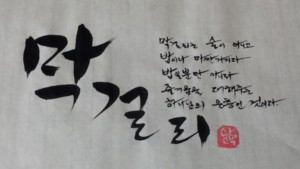 막걸리
막걸리는 술이 아니고
밥이나 마찬가지다
밥일뿐만 아니라
즐거움을 더해주는
하나님의 은총인 것이다